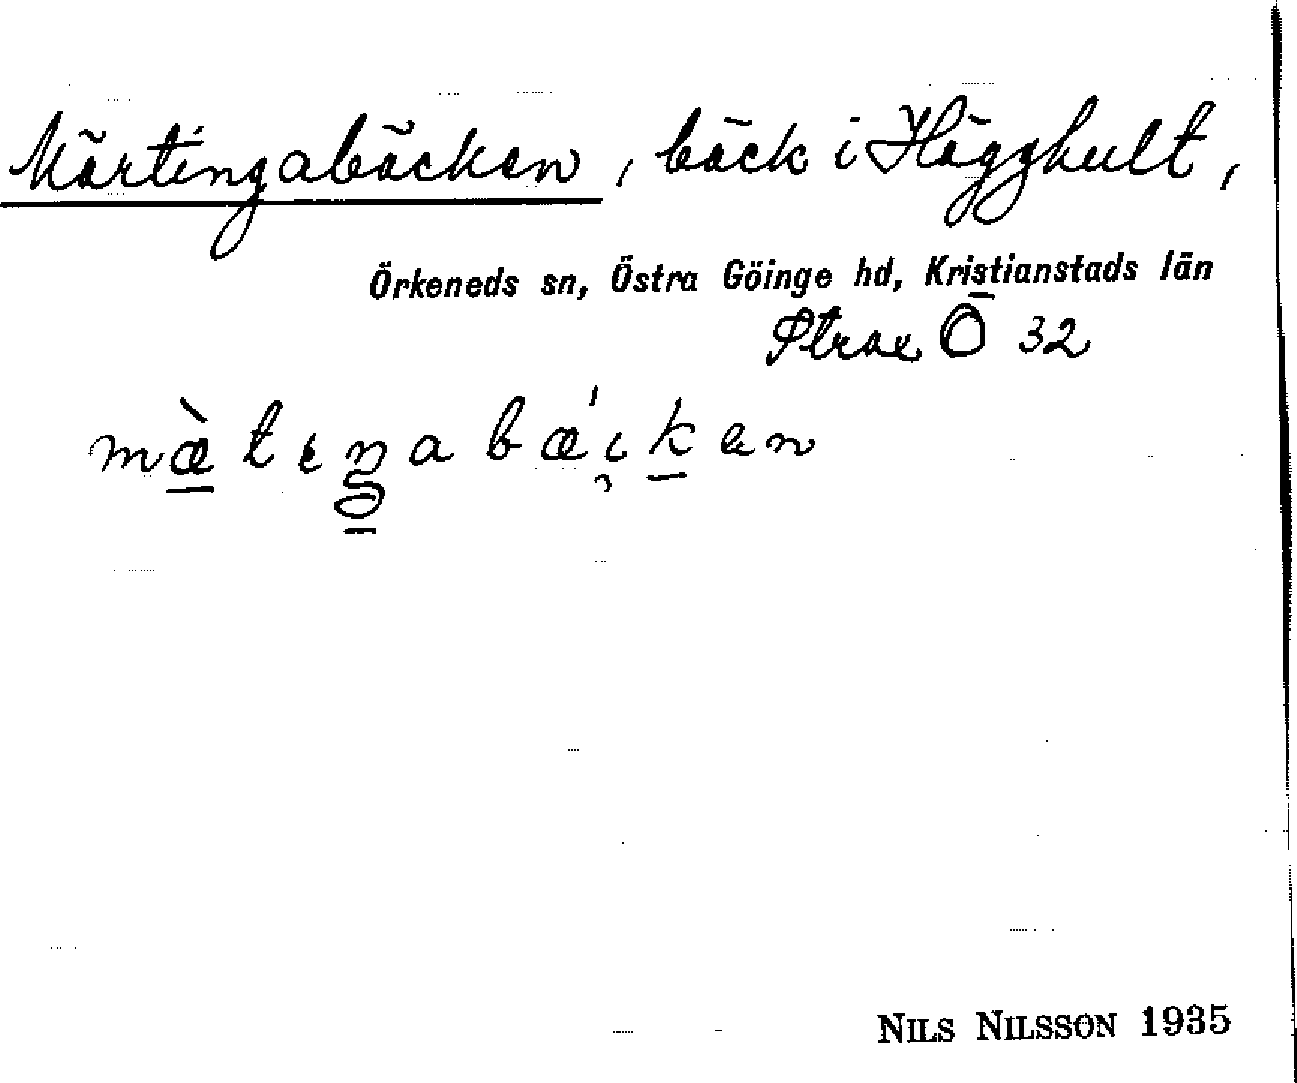 Märtingabäcken, bäck i Hägghult,
Örkeneds sn, Östra Göinge hd, Kristianstads län
Strax Ö 32
mæ̀tıŋabǽıken
NILS NILSSON 1935